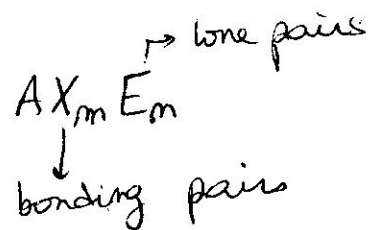 lone pairs
AXmEn
bonding pairs